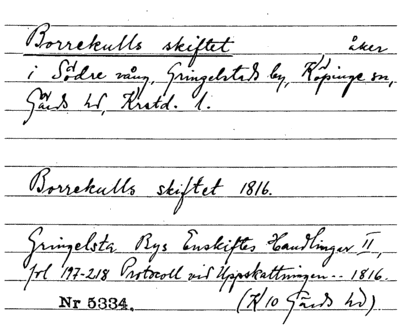 Borrekulls skiftet, åker
i Södre vång, Gringelstads by, Köpinge sn,
Gärds hd, Krstd. l.
Borrekulls skiftet 1816.
Gringelsta Bys Enskiftes Handlingar II,
fol 197-218 Protocoll vid Uppskattningen -- 1816.
Nr 5334. (K 10 Gärds hd).